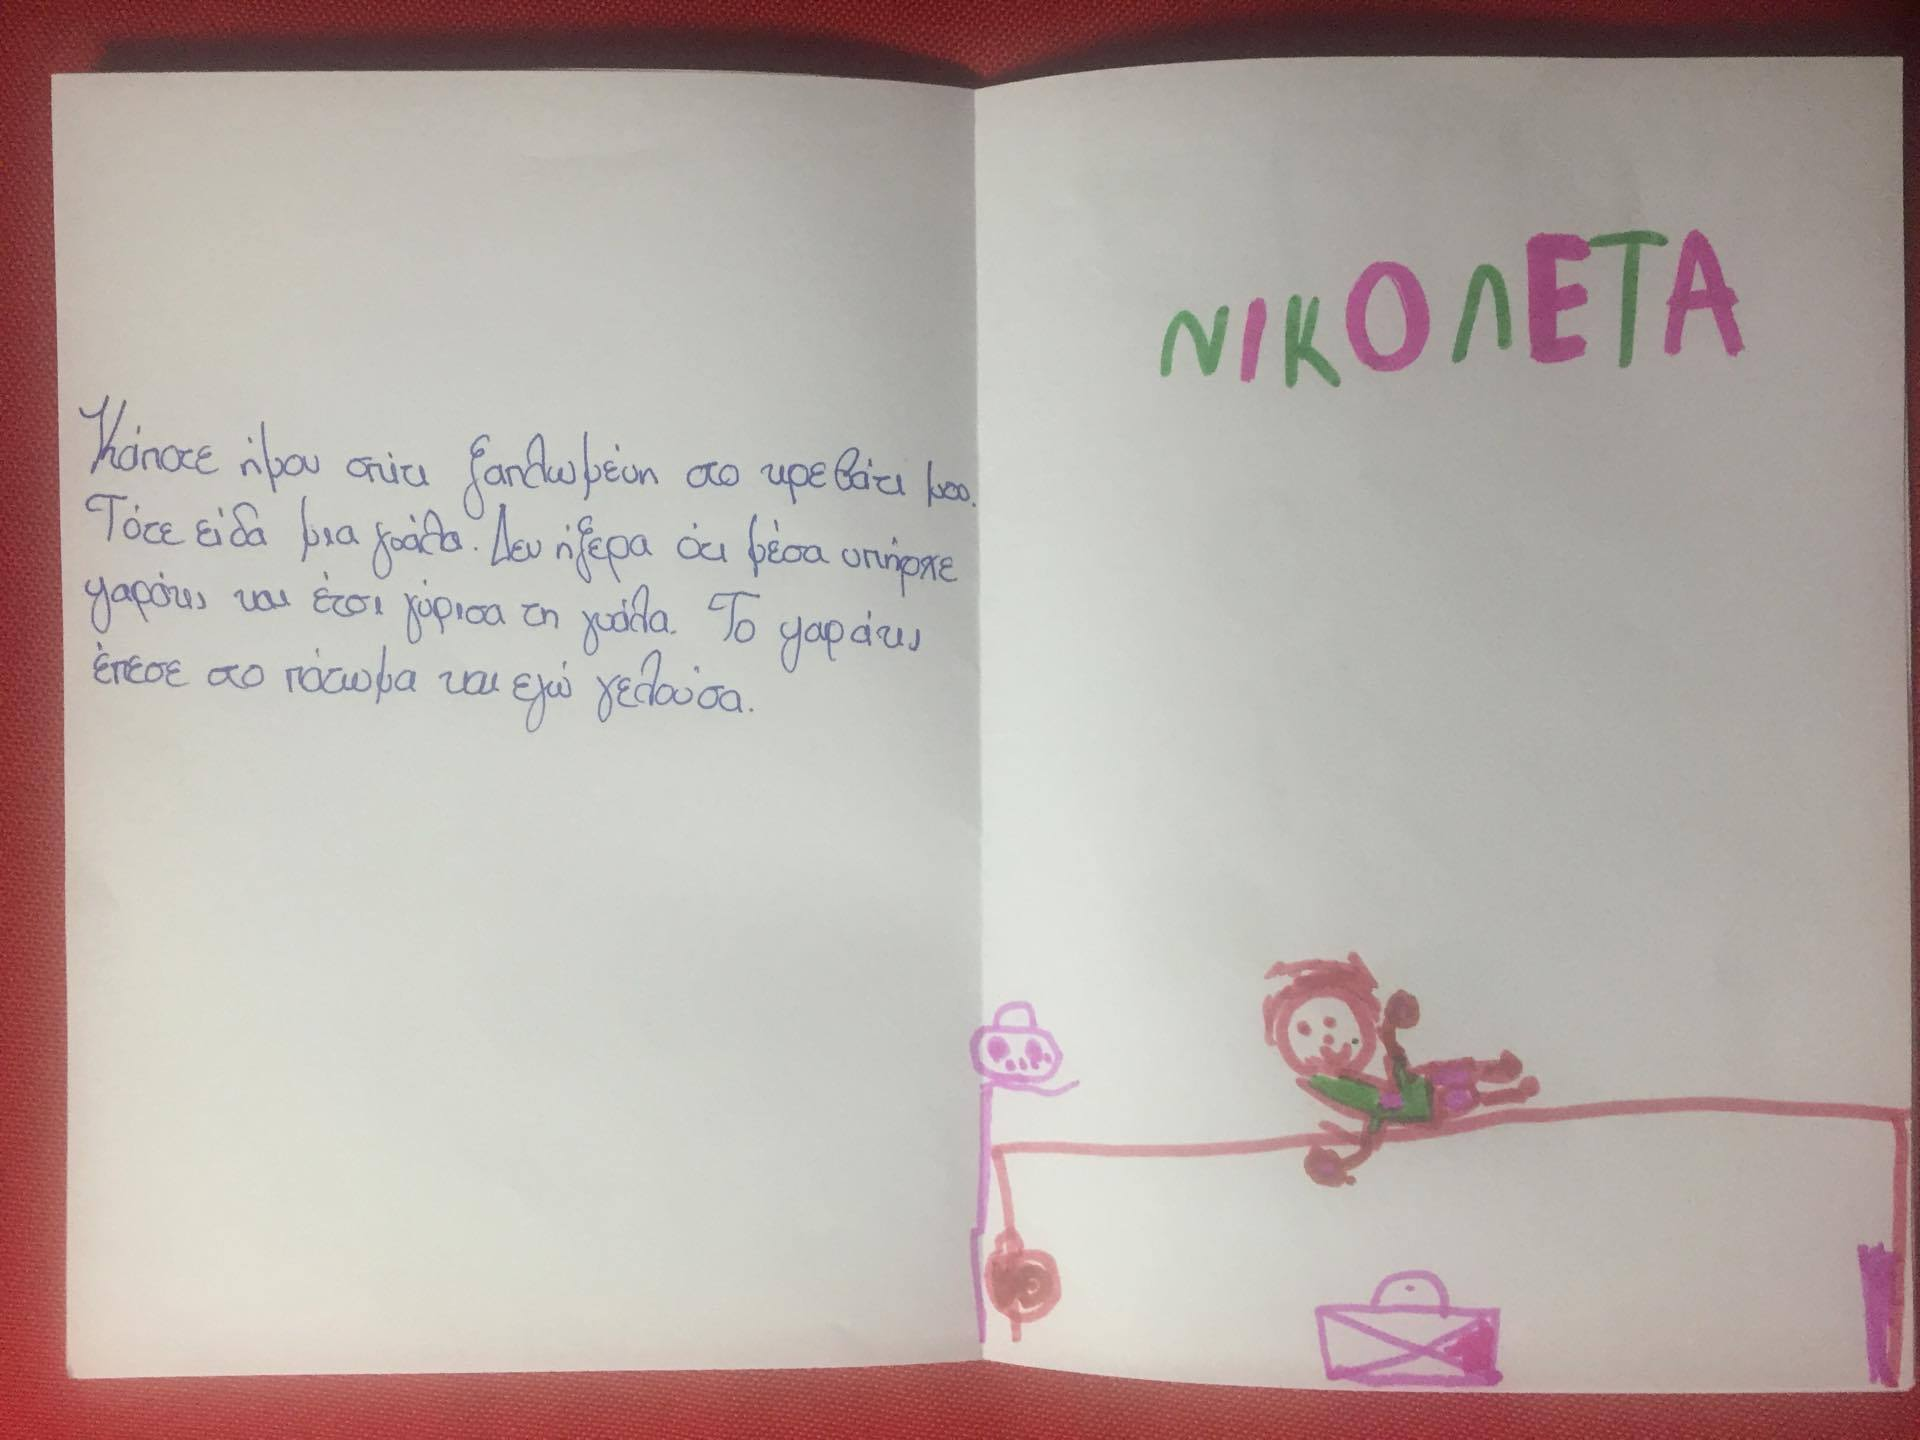 Κάποτε ήμου σπίτι ξαπλωμένη στο κρεβάτι μου.
Τότε είδα μια γυάλα. Δεν ήξερα ότι μέσα υπήρχε
ψαράκι και έτσι γύρισα τη γυάλα. Το ψαράκι
έπεσε στο πάτωμα και εγώ γελούσα.
ΝΙΚΟΛΕΤΑ